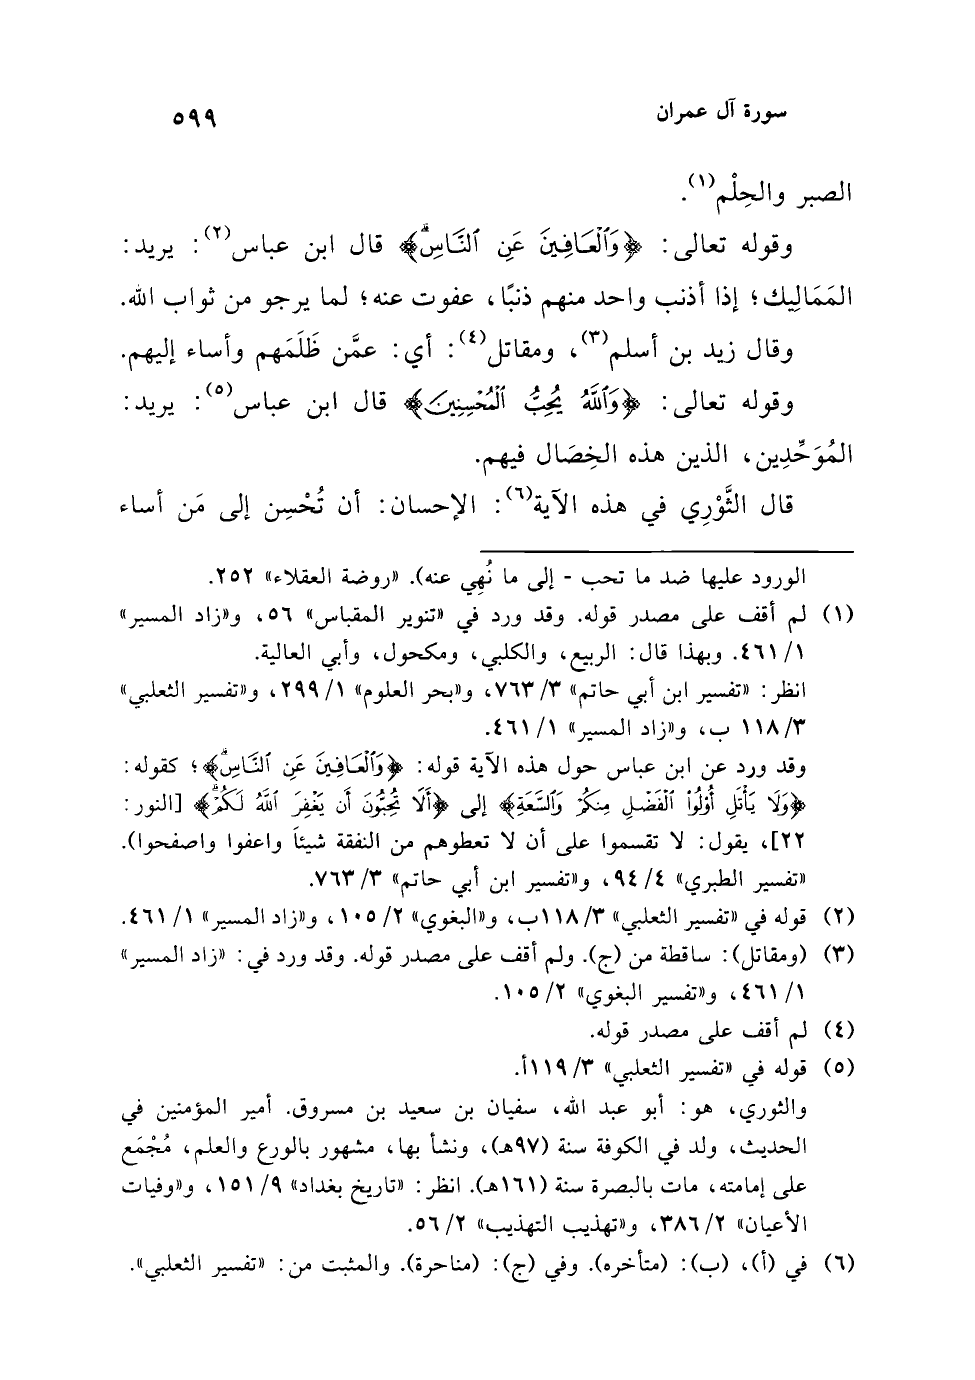 سورة آل عمران ٥٩٩
الصبر والحِلْم(١).
وقوله تعالى: ﴿وَٱلْعَافِينَ عَنِ ٱلنَّاسِۗ﴾ قال ابن عباس(٢): يريد:
المَمَالِيك؛ إذا أذنب واحد منهم ذنبًا، عفوت عنه؛ لما يرجو من ثواب الله.
وقال زيد بن أسلم(٣)، ومقاتل(٤): أي: عمَّن ظَلَمَهم وأساء إليهم.
وقوله تعالى: ﴿وَٱللَّهُ يُحِبُّ ٱلْمُحْسِنِينَ﴾ قال ابن عباس(٥): يريد:
المُوَحِّدِين، الذين هذه الخِصَال فيهم.
قال الثَّوْرِي في هذه الآية(٦): الإحسان: أن تُحْسِن إلى مَن أساء
الورود عليها ضد ما تحب - إلى ما نُهِي عنه). «روضة العقلاء» ٢٥٢.
(١) لم أقف على مصدر قوله. وقد ورد في «تنوير المقباس» ٥٦، و«زاد المسير»
١/ ٤٦١. وبهذا قال: الربيع، والكلبي، ومكحول، وأبي العالية.
انظر: «تفسير ابن أبي حاتم» ٣/ ٧٦٣، و«بحر العلوم» ١/ ٢٩٩، و«تفسير الثعلبي»
٣/ ١١٨ ب، و«زاد المسير» ١/ ٤٦١.
وقد ورد عن ابن عباس حول هذه الآية قوله: ﴿وَٱلْعَافِينَ عَنِ ٱلنَّاسِۗ﴾؛ كقوله:
﴿وَلَا يَأْتَلِ أُوْلُواْ ٱلْفَضْلِ مِنكُمْ وَٱلسَّعَةِ﴾ إلى ﴿أَلَا تُحِبُّونَ أَن يَغْفِرَ ٱللَّهُ لَكُمْۗ﴾ [النور:
٢٢]، يقول: لا تقسموا على أن لا تعطوهم من النفقة شيئاً واعفوا واصفحوا).
«تفسير الطبري» ٤/ ٩٤، و«تفسير ابن أبي حاتم» ٣/ ٧٦٣.
(٢) قوله في «تفسير الثعلبي» ٣/ ١١٨ب، و«البغوي» ٢/ ١٠٥، و«زاد المسير» ١/ ٤٦١.
(٣) (ومقاتل): ساقطة من (ج). ولم أقف على مصدر قوله. وقد ورد في: «زاد المسير»
١/ ٤٦١، و«تفسير البغوي» ٢/ ١٠٥.
(٤) لم أقف على مصدر قوله.
(٥) قوله في «تفسير الثعلبي» ٣/ ١١٩أ.
والثوري، هو: أبو عبد الله، سفيان بن سعيد بن مسروق. أمير المؤمنين في
الحديث، ولد في الكوفة سنة (٩٧هـ)، ونشأ بها، مشهور بالورع والعلم، مُجْمَع
على إمامته، مات بالبصرة سنة (١٦١هـ). انظر: «تاريخ بغداد» ٩/ ١٥١، و«وفيات
الأعيان» ٢/ ٣٨٦، و«تهذيب التهذيب» ٢/ ٥٦.
(٦) في (أ)، (ب): (متأخره). وفي (ج): (مناحرة). والمثبت من: «تفسير الثعلبي».